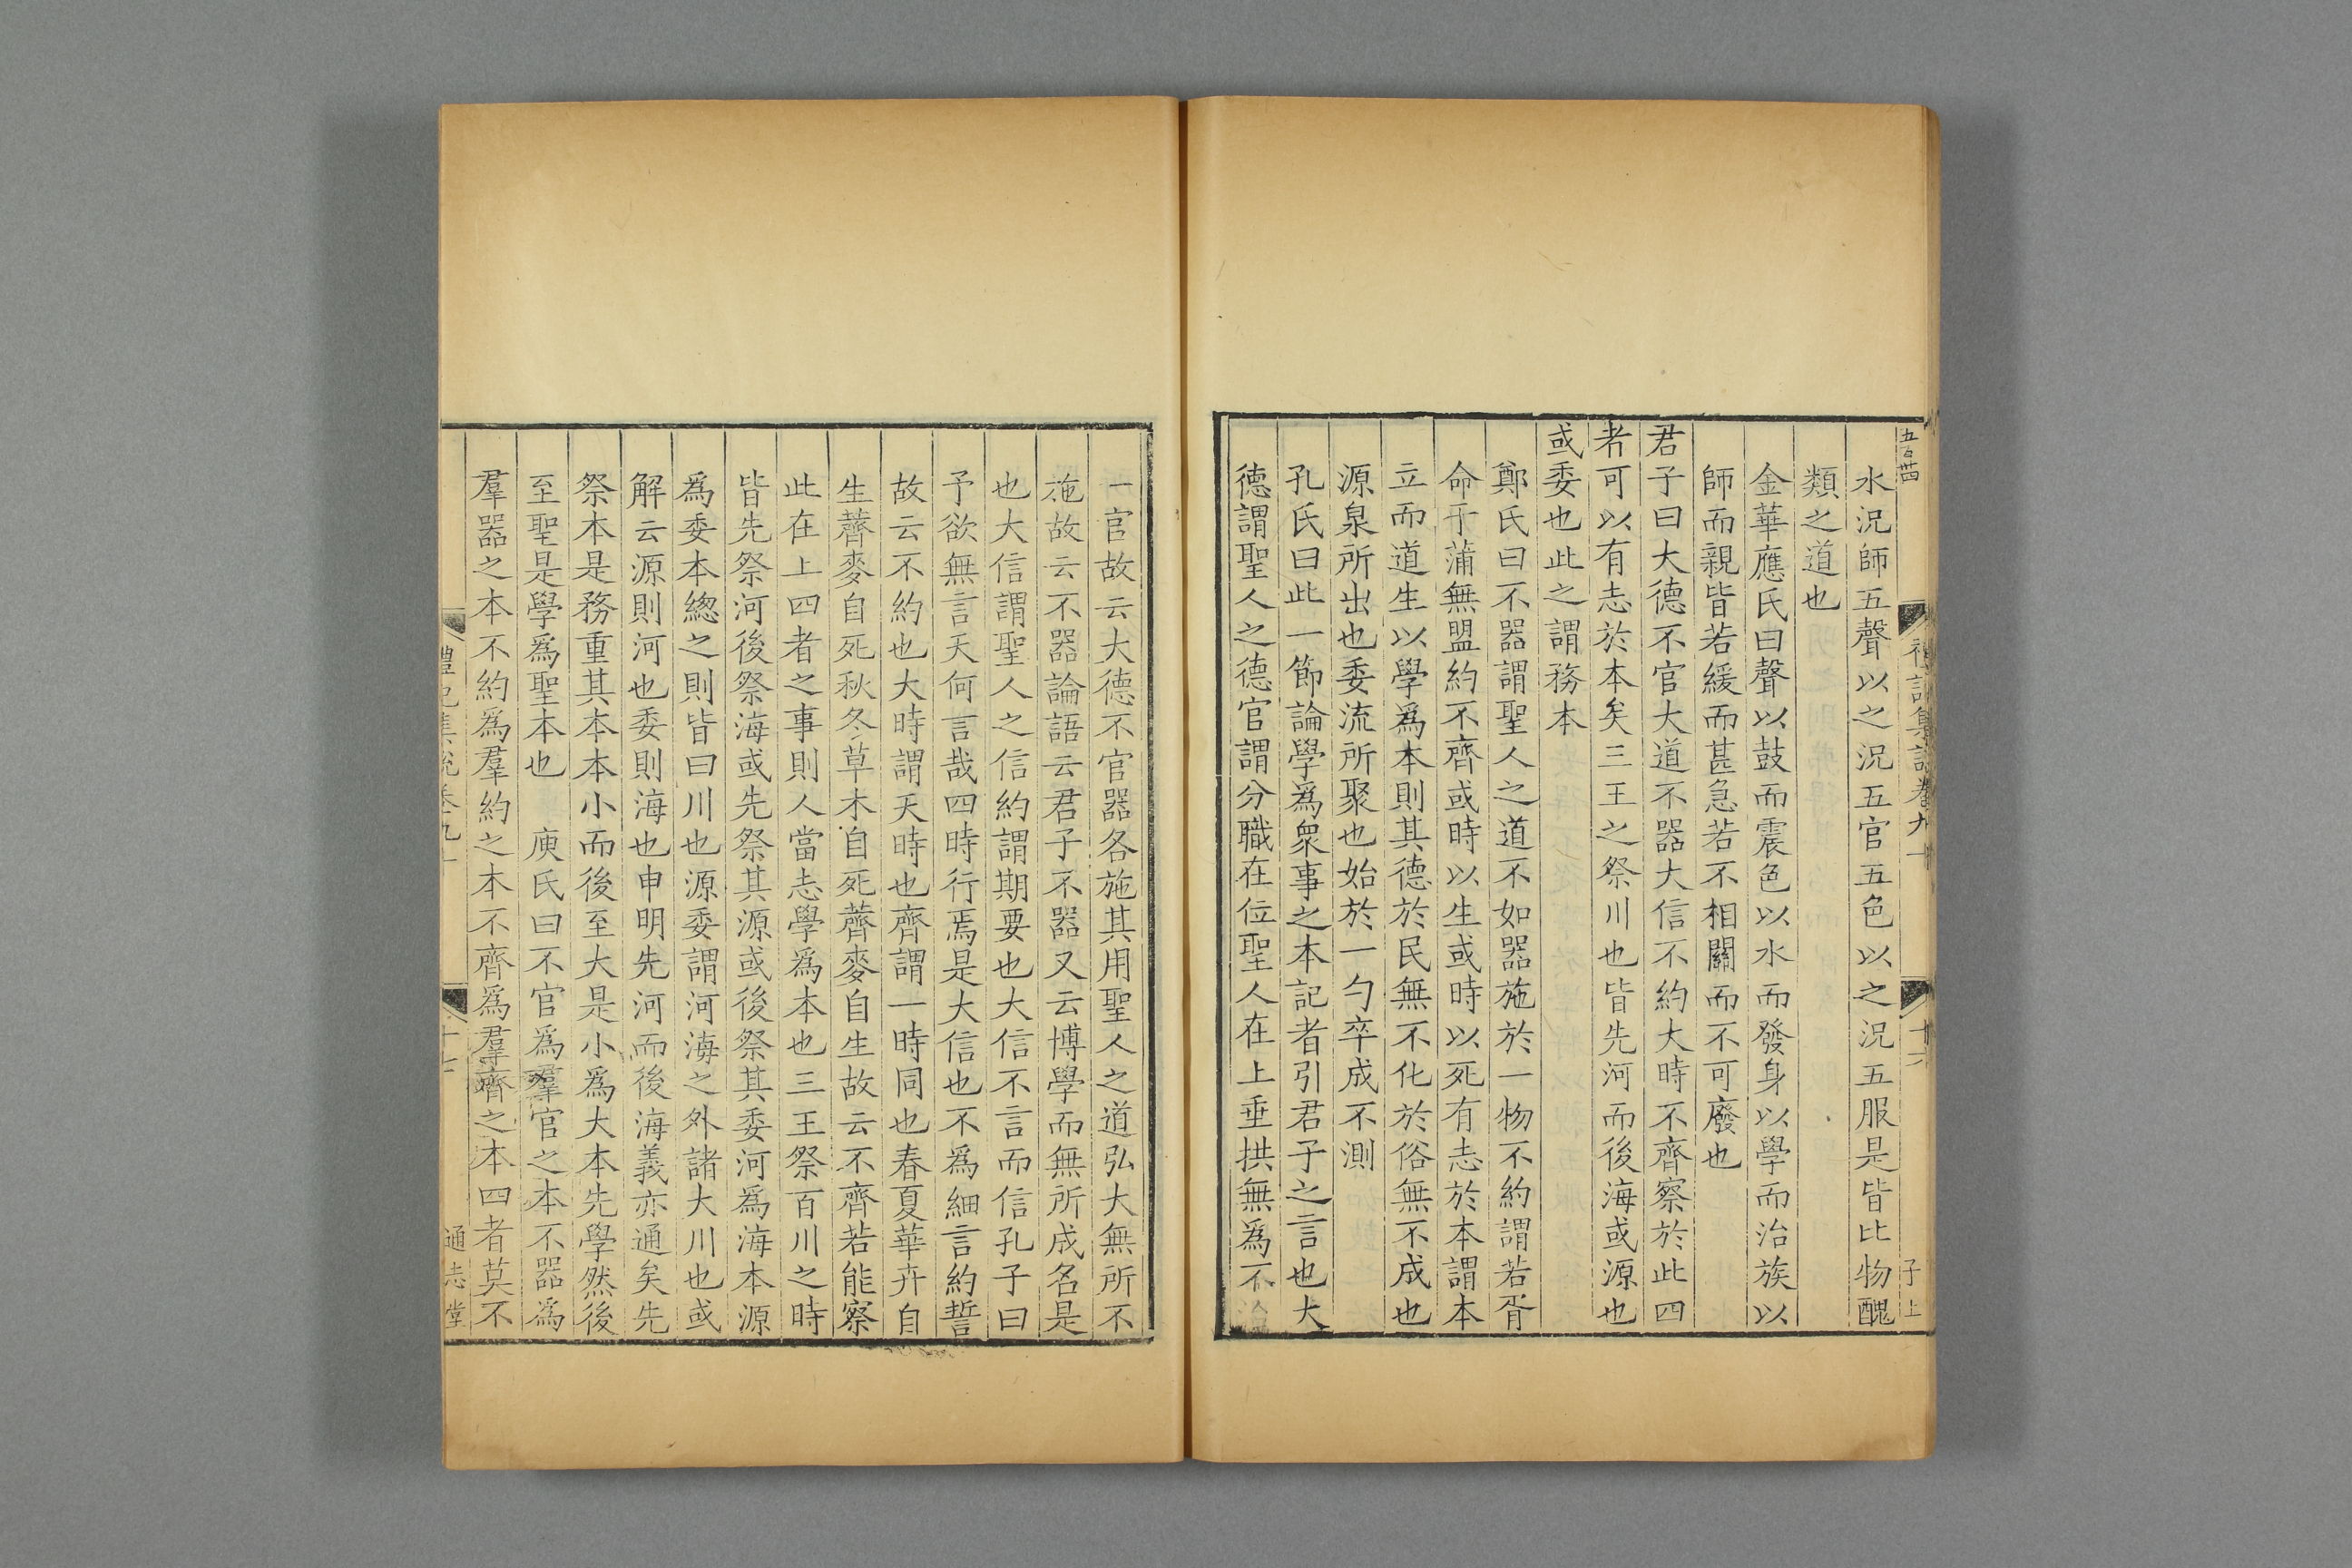 水況師五聲以之況五官五色以之況五服是皆比物醜
類之道也
金華應氏曰聲以鼓而震色以水而發身以學而治族以
師而親皆若緩而甚急若不相關而不可廢也
君子曰大德不官大道不器大信不約大時不齊察於此四
者可以有志於本矣三王之祭川也皆先河而後海或源也
或委也此之謂務本
鄭氏曰不器謂聖人之道不如器施於一物不約謂若胥
命于蒲無盟約不齊或時以生或時以死有志於本謂本
立而道生以學爲本則其德於民無不化於俗無不成也
源泉所出也委流所聚也始於一勺卒成不測
孔氏曰此一節論學爲衆事之本記者引君子之言也大
德謂聖人之德官謂分職在位聖人在上垂拱無爲不
一官故云大德不官器各施其用聖人之道弘大無所不
施故云不器論語云君子不器又云博學而無所成名是
也大信謂聖人之信約謂期要也大信不言而信孔子曰
予欲無言天何言哉四時行焉是大信也不爲細言約誓
故云不約也大時謂天時也齊謂一時同也春夏華卉自
生薺麥自死秋冬草木自死薺麥自生故云不齊若能察
此在上四者之事則人當志學爲本也三王祭百川之時
皆先祭河後祭海或先祭其源或後祭其委河爲海本源
爲委本總之則皆曰川也源委謂河海之外諸大川也或
解云源則河也委則海也申明先河而後海義亦通矣先
祭本是務重其本本小而後至大是小爲大本先學然後
至聖是學爲聖本也　庾氏曰不官爲羣官之本不器爲
羣器之本不約爲羣約之本不齊爲羣齊之本四者莫不
禮記集說卷九十
十七
通志堂